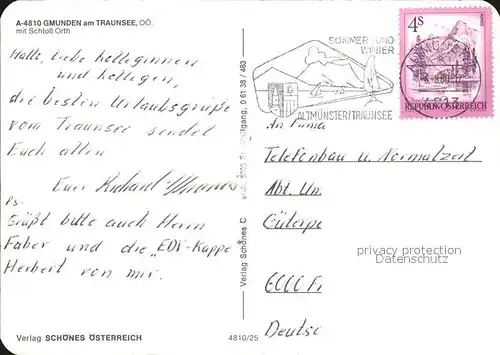 A-4810 GMUNDEN am TRAUNSEE, OÖ.
mit Schloß Orth
Hallo, liebe Kolleginnen
und Kollegen,
die besten Urlaubsgrüße
vom Traunsee sendet
Euch allen
Euer Richard
Ps.
Grüßt bitte auch Herrn
Faber und die "EDV-Kappe"
Herbert von mir.
Verlag SCHÖNES ÖSTERREICH
4810/25
Verlag Schönes Ö
0 61 38 / 483
SOMMER UND
WINTER
ALTMÜNSTER/TRAUNSEE
4S
REPUBLIK ÖSTERREICH
An Firma
Telefonbau u. Normalzeit
Abt. Um
Güterpe
6000 Fr
Deutsc
privacy protection
Datenschutz